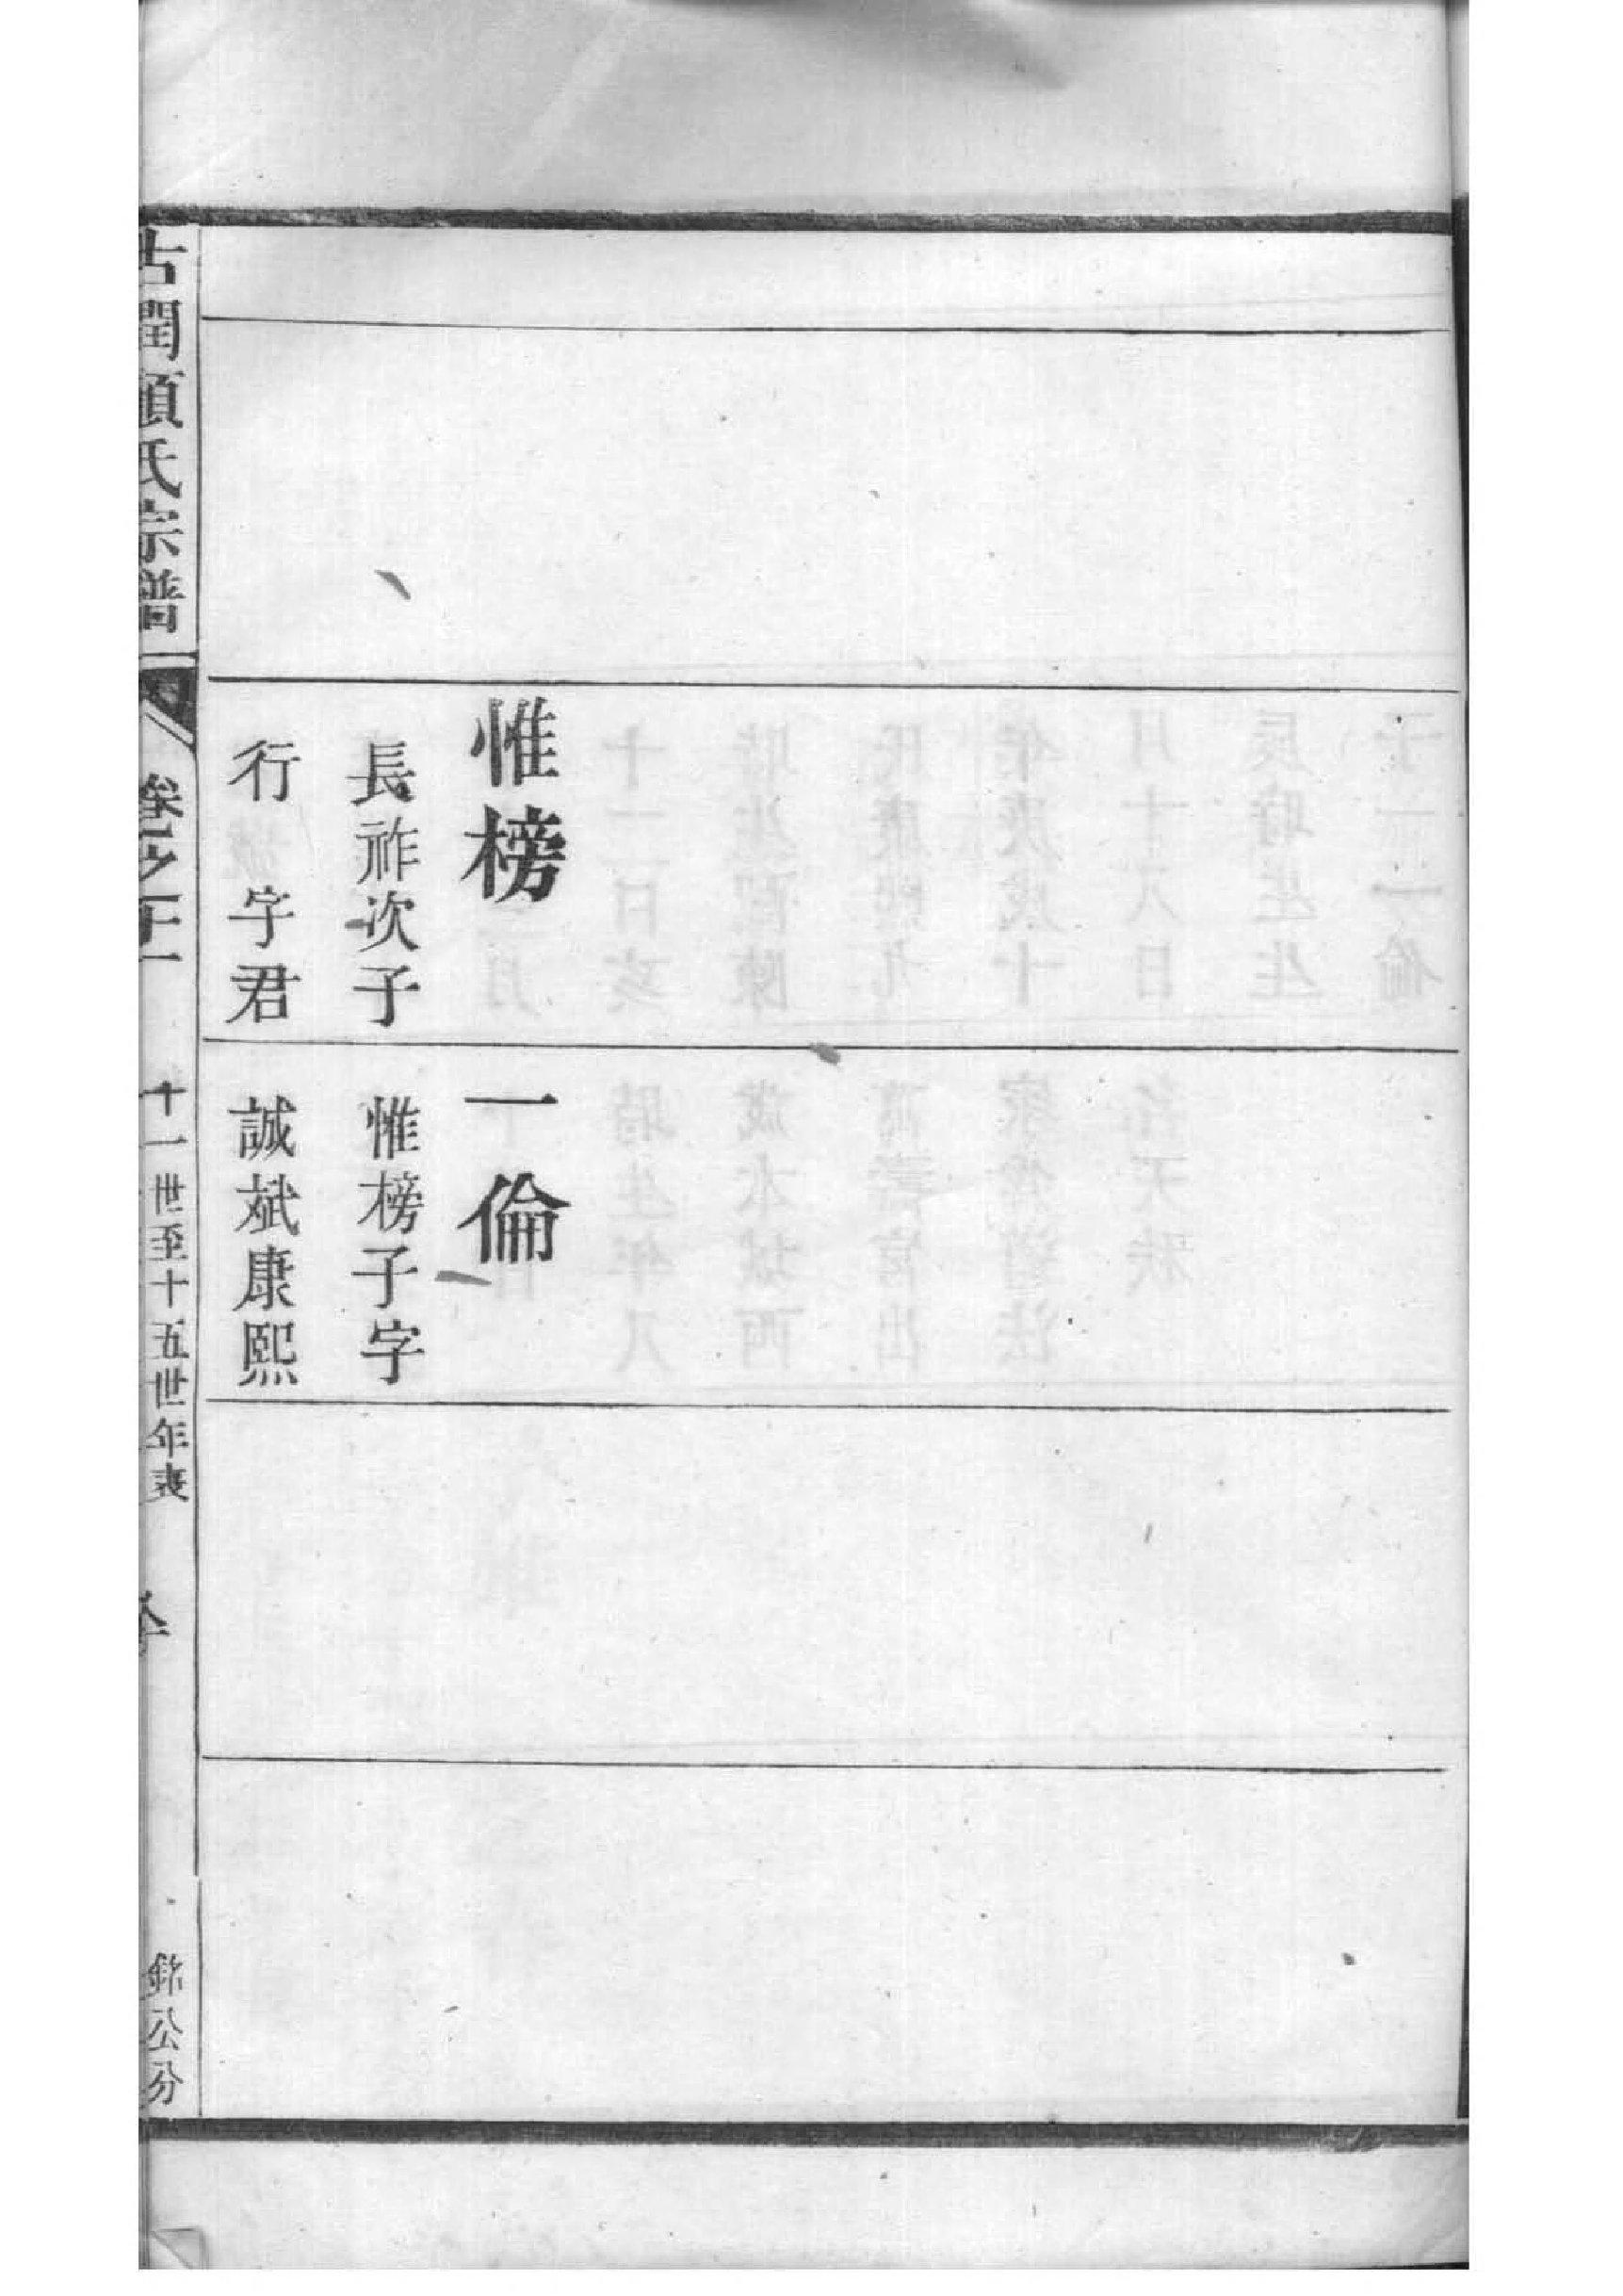 惟榜
長祚次子
行 字君
一倫
惟榜子字
誠斌康熙
古潤顧氏宗譜
卷之二十一
十一世至十五世年表
銘公分